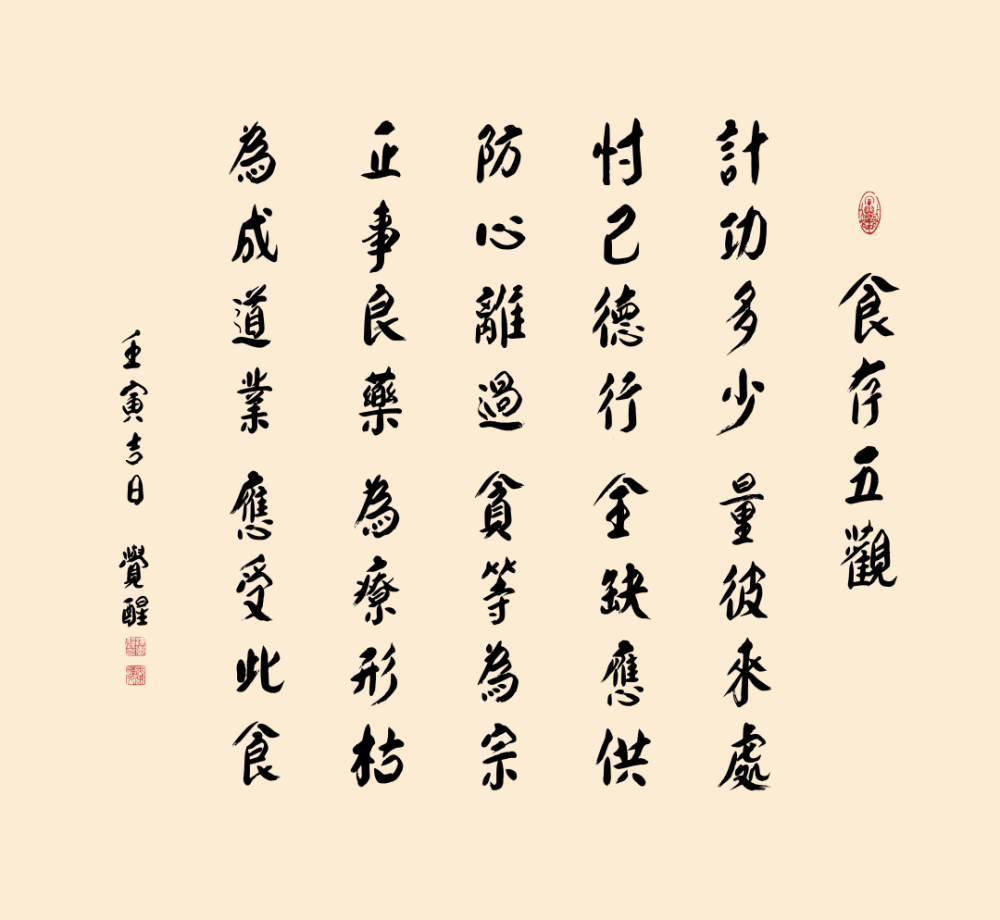 食存五觀
計功多少 量彼來處
忖己德行 全缺應供
防心離過 貪等為宗
正事良藥 為療形枯
為成道業 應受此食
壬寅吉日 覺醒